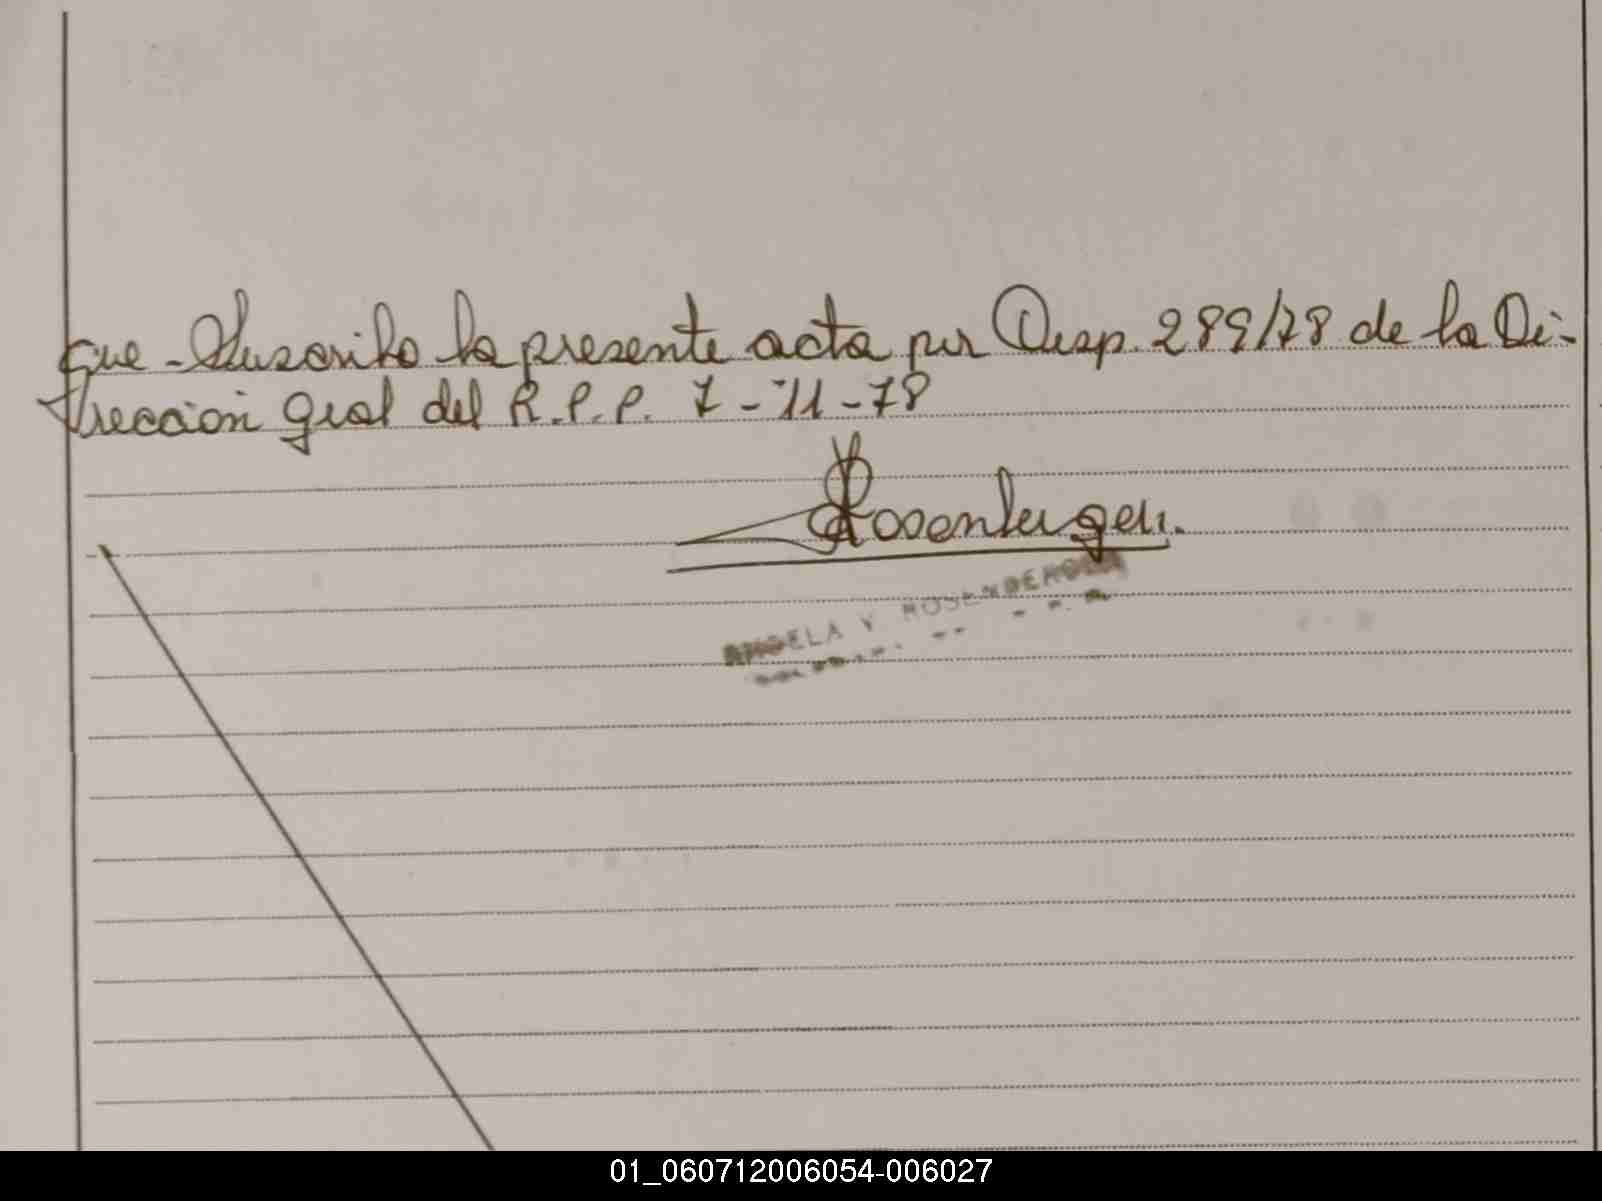 que - Suscribo la presente acta por Disp. 289/78 de la Di-
rección Gral del R.P.P. 7-11-78
Rosenberger.
ANGELA V ROSENBERGER
01_060712006054-006027